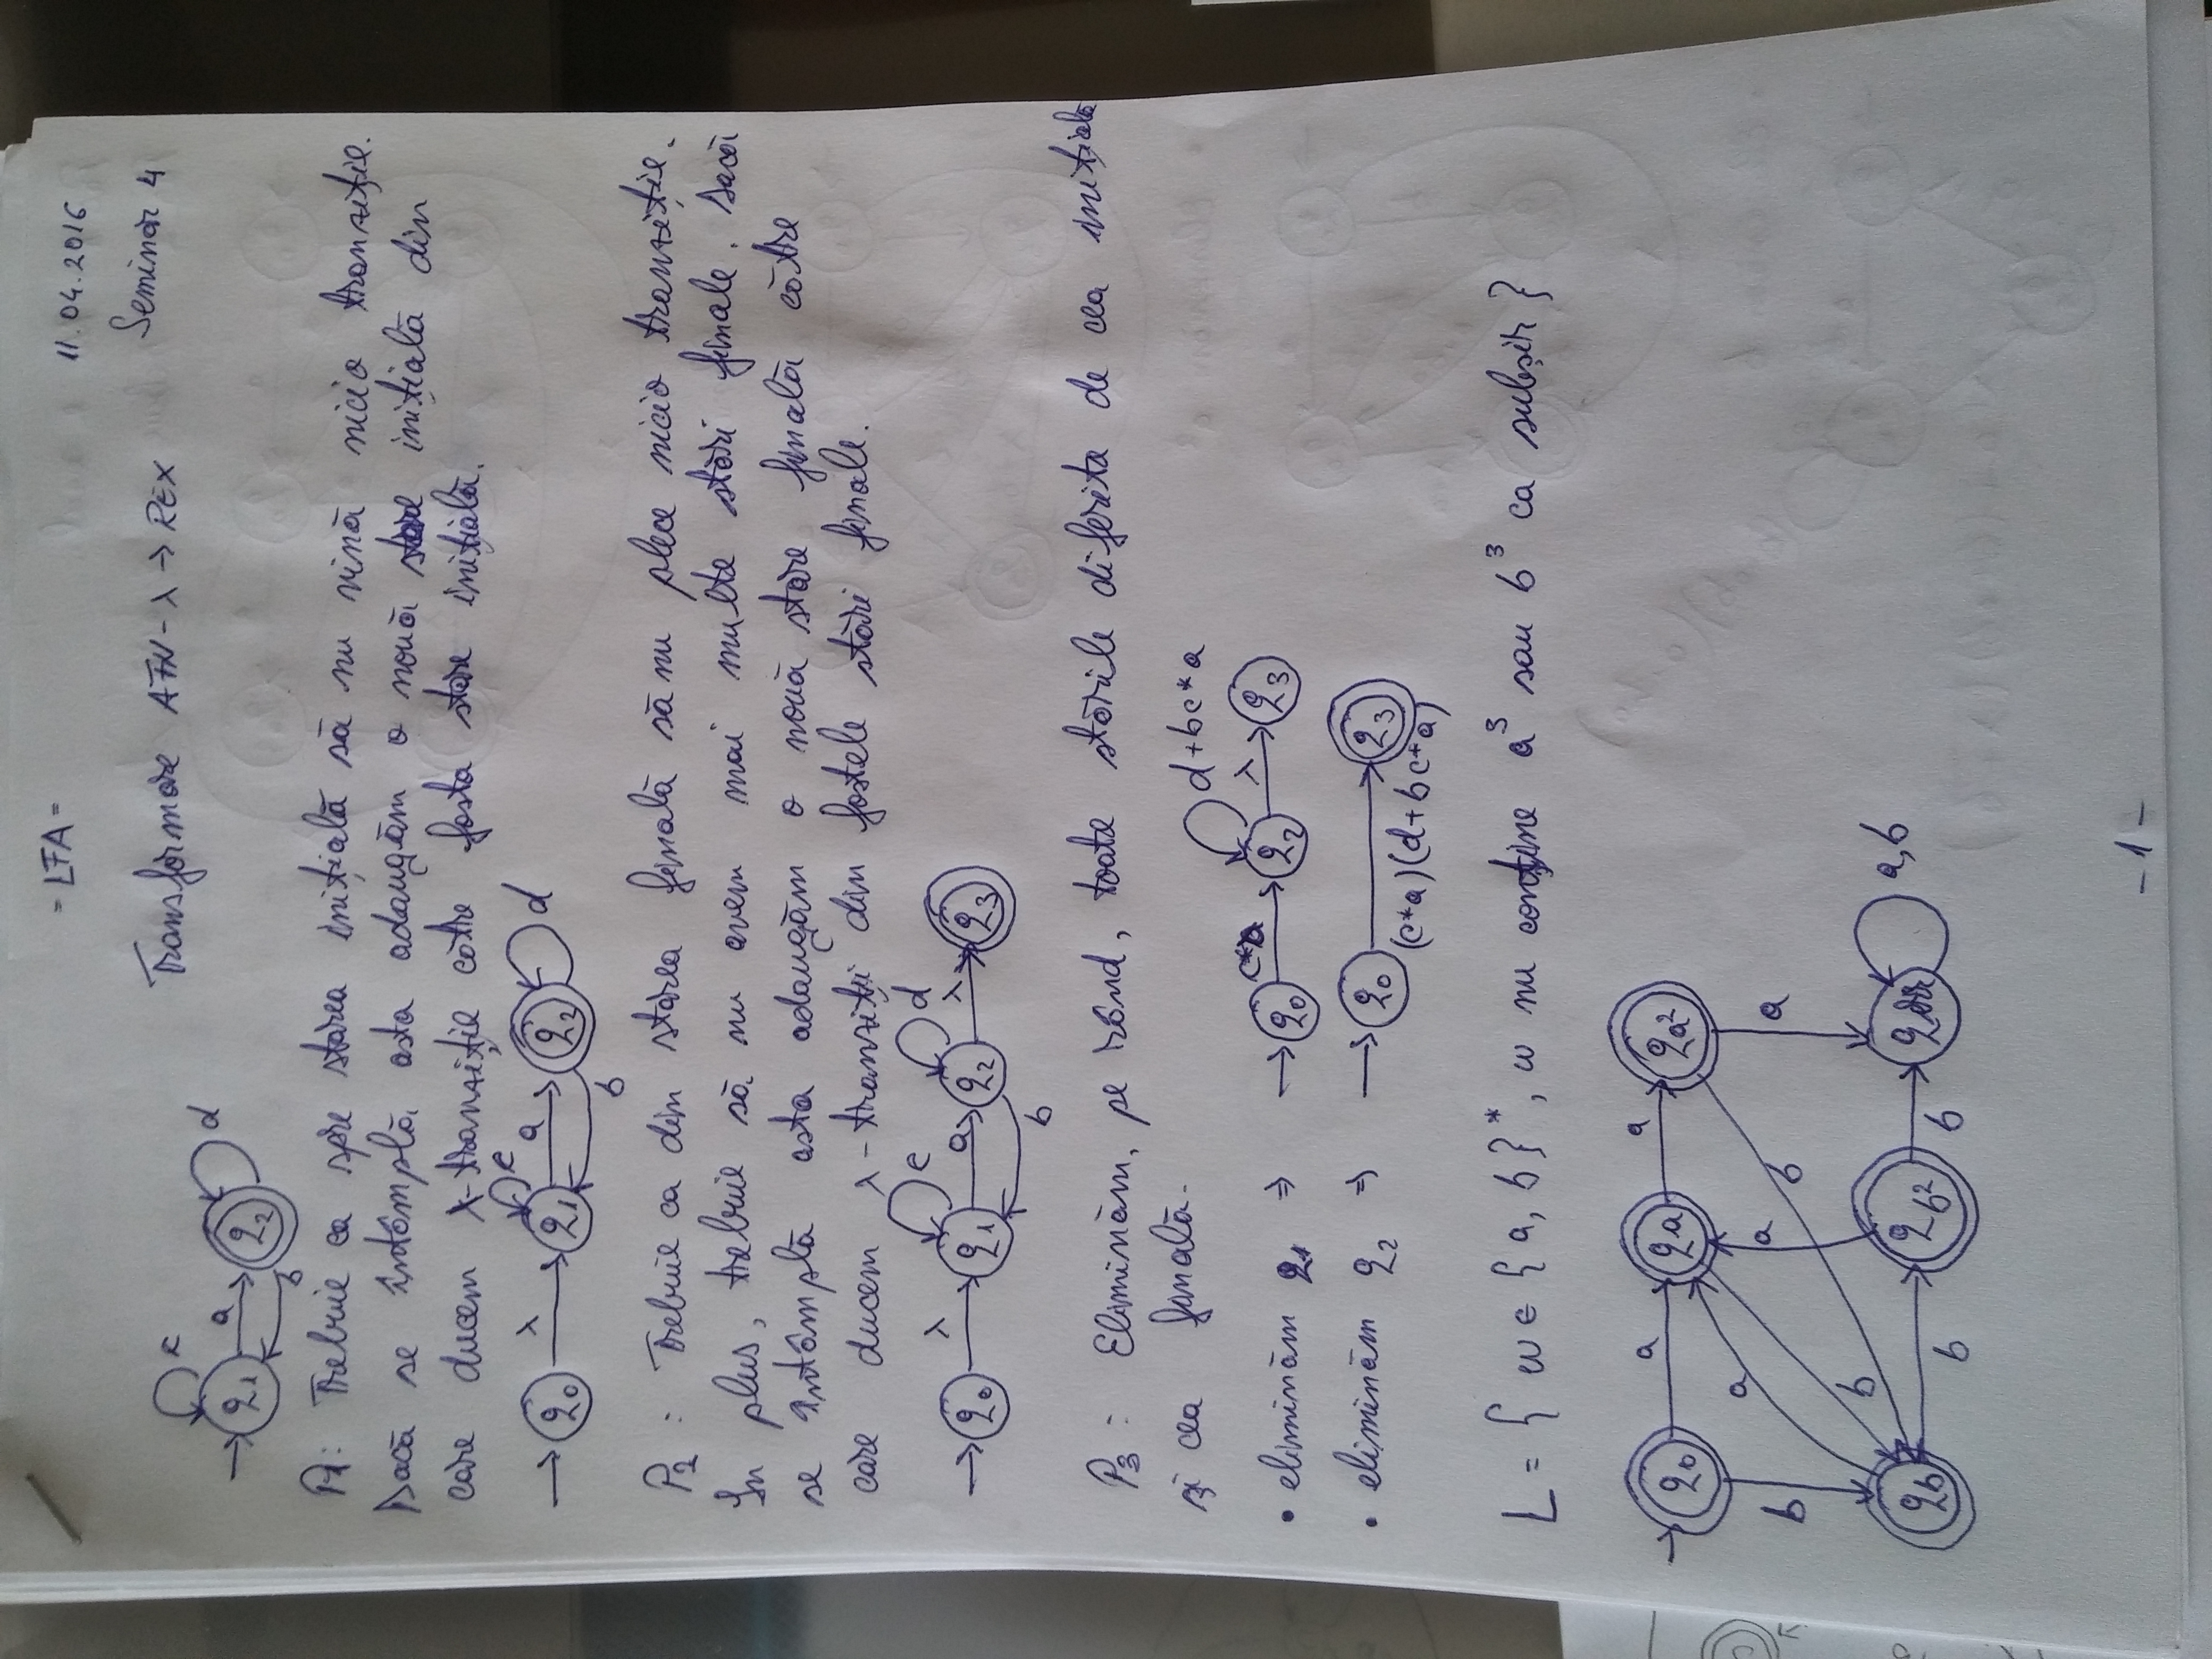 - LFA -
11.04.2016
Seminar 4
Transformare AFN-λ → REX
c
→ q1 a q2 d
b
P1: Trebuie ca spre starea inițială să nu vină nicio tranziție.
Dacă se întâmplă asta adaugăm o nouă stare inițială din
care ducem λ-tranziție către fosta stare inițială.
c
→ q0 λ q1 a q2 d
b
P2 : Trebuie ca din starea finală să nu plece nicio tranziție.
În plus, trebuie să nu avem mai multe stări finale. Dacă
se întâmplă asta adaugăm o nouă stare finală către
care ducem λ-tranziții din fostele stări finale.
c d
→ q0 λ q1 a q2 λ q3
b
P3 : Eliminăm, pe rând, toate stările diferite de cea inițială
și cea finală.
d+bc*a
• eliminăm q1 ⇒ → q0 c*a q2 λ q3
• eliminăm q2 ⇒ → q0 q3
(c*a)(d+bc*a)
L = { w ∈ {a, b}*, w nu conține a³ sau b³ ca subșir }
q0 a qa a qa²
b a a b a
b
qb b qb² b qerr a,b
- 1 -